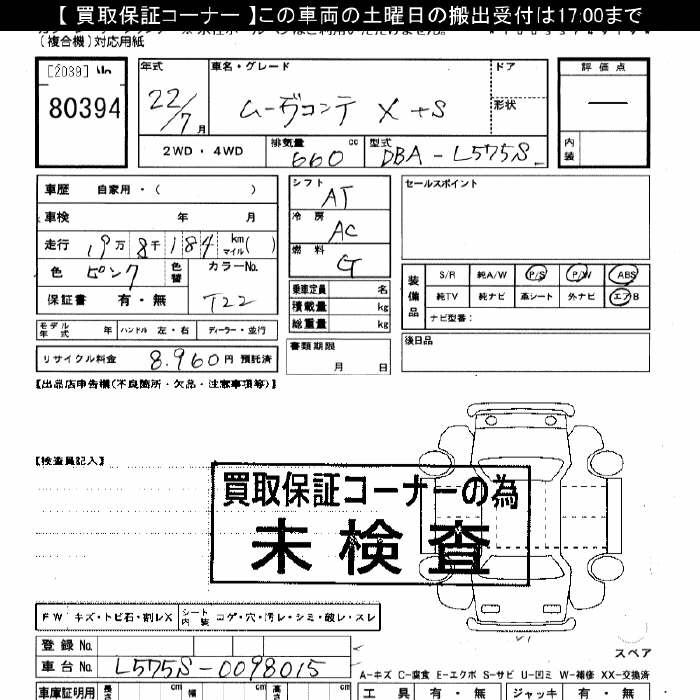 【 買取保証コーナー 】この車両の土曜日の搬出受付は17:00まで
(複合機)対応用紙
[2039]
80394
年式 車名・グレード ドア
22/7月 ムーヴコンテ X +S 形状
2WD・4WD 排気量 660 cc 型式 DBA-L575S
評価点
—
内装
車歴 自家用・( )
車検 年 月
走行 19万8千184 km マイル( )
色 ピンク 色替 カラーNo. T22
保証書 有・無
モデル年式 年 ハンドル 左・右 ディーラー・並行
リサイクル料金 8.960円 預託済
シフト AT
冷房 AC
燃料 G
乗車定員 名
積載量 kg
総重量 kg
書類期限
月 日
セールスポイント
装備品
S/R 純A/W P/S P/W ABS
純TV 純ナビ 革シート 外ナビ エアB
ナビ型番:
後日品
【出品店申告欄(不良箇所・欠品・注意事項等)】
【検査員記入】
買取保証コーナーの為
未検査
FW キズ・トビ石・割レX シート内装 コゲ・穴・汚レ・シミ・破レ・スレ
登録No.
車台No. L575S-0098015
スペア
A-キズ C-腐食 E-エクボ S-サビ U-凹ミ W-補修 XX-交換済
車庫証明用 長さ cm 幅 cm 高さ cm
工具 有・無 ジャッキ 有・無